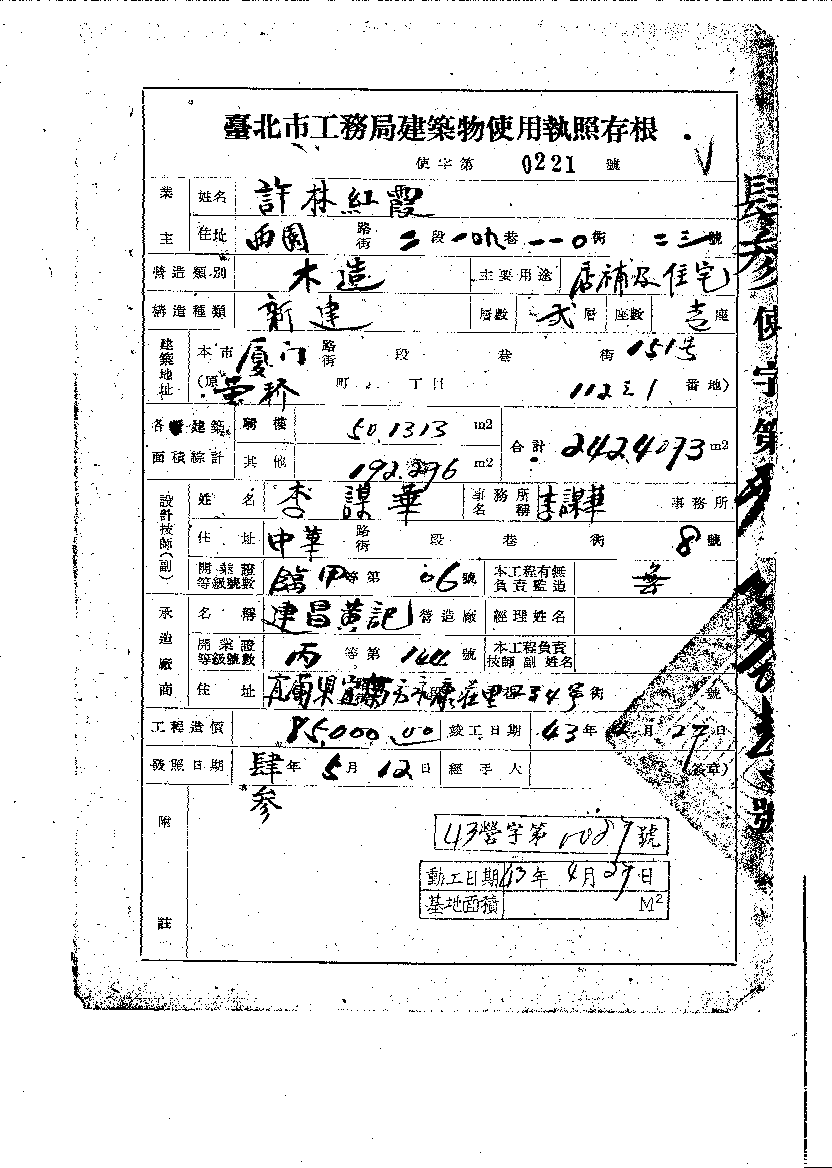 臺北市工務局建築物使用執照存根
使字第 0221 號
業主 姓名 許林紅霞
住址 西園 路街 二段 一〇九巷 一一〇街 二三號
營造類別 木造 主要用途 店補及住宅
構造種類 新建 層數 弍層 座數 壹座
建築地址 本市 廈门 路街 段 巷 街 151号
(原 螢橋 町 丁目 112之1 番地)
各 建築面積綜計 騎樓 50.1313 m2 合計 242.4073 m2
其他 192.276 m2
設計技師(副) 姓名 李謀華 事務所名稱 李謀華 事務所
住址 中華 路街 段 巷 街 8號
開業證等級號數 臨甲等第 06號 本工程有無負責監造 無
承造廠商 名稱 建昌黃記 營造廠 經理姓名
開業證等級號數 丙等第 144號 本工程負責技師副姓名
住址 宜蘭縣宜蘭 街 號
工程造價 85,000.00 竣工日期 43年 月 27日
發照日期 肆参年 5月 12日 經手人 (簽章)
附註
43營字第1089號
動工日期 43年 4月 29日
基地面積 M²
肆参使字第 號